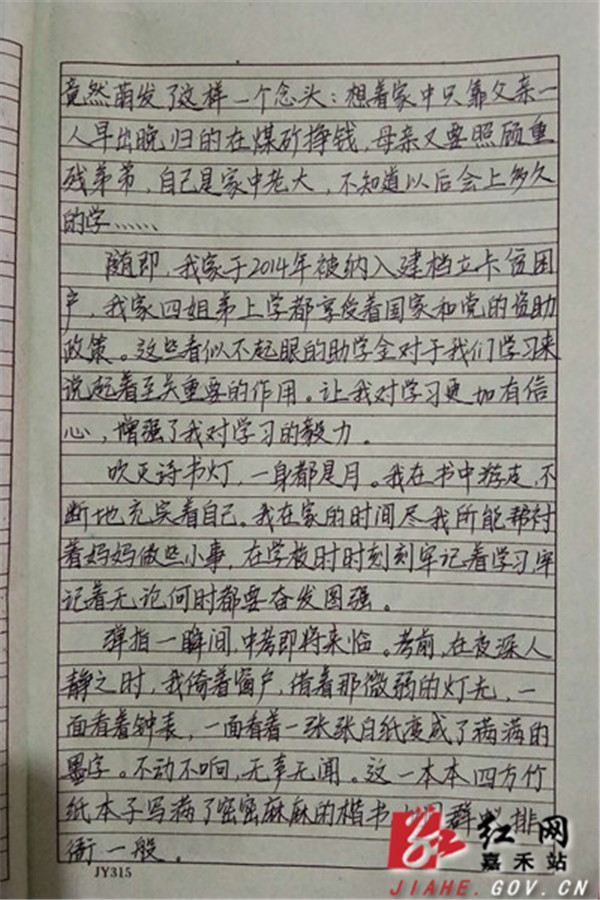 竟然萌发了这样一个念头：想着家中只靠父亲一
人早出晚归的在煤矿挣钱，母亲又要照顾重
残弟弟，自己是家中老大，不知道以后会上多久
的学……
随即，我家于2014年被纳入建档立卡贫困
户，我家四姐弟上学都享受着国家和党的资助
政策。这些看似不起眼的助学金对于我们学习来
说起着至关重要的作用。让我对学习更加有信
心，增强了我对学习的毅力。
吹灭诗书灯，一身都是月。我在书中游走，不
断地充实着自己。我在家的时间尽我所能帮衬
着妈妈做些小事，在学校时时刻刻牢记着学习，牢
记着无论何时都要奋发图强。
弹指一瞬间，中考即将来临。考前，在夜深人
静之时，我倚着窗户，借着那微弱的灯光，一
面看着钟表，一面看着一张张白纸变成了满满的
墨字。不动不响，无声无闻。这一本本四方竹
纸本子写满了密密麻麻的楷书 群蚁排
衙一般。
JY315
红网
嘉禾站
JIAHE.GOV.CN